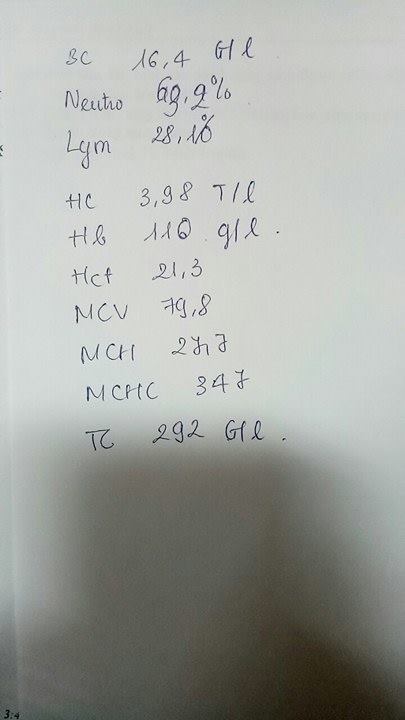 BC 16,4 G/l
Neutro 69,2%
Lym 28,1%
HC 3,98 T/l
Hb 110 g/l.
Hct 21,3
MCV 79,8
MCH 27,7
MCHC 347
TC 292 G/l.
3:4